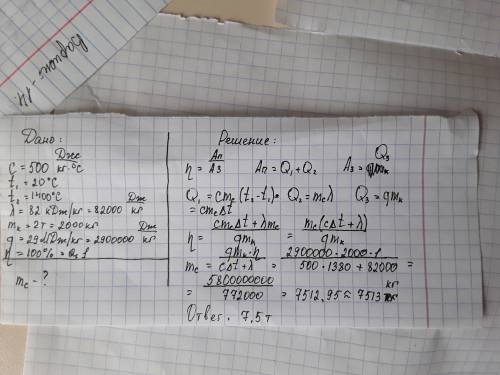 Вариант - 14.
Дано:
c = 500 Дж/кг·°C
t₁ = 20°C
t₂ = 1400°C
λ = 82 кДж/кг = 82000 Дж/кг
mₖ = 2т = 2000кг
q = 29 МДж/кг = 2900000 Дж/кг
η = 100% = 1
m_c - ?
Решение:
η = Aп/Aз Aп = Q₁ + Q₂ Aз = Q₃
Q₁ = cm_c (t₂-t₁) = Q₂ = m_cλ Q₃ = qmₖ
= cm_cΔt
η = (cm_cΔt + λm_c)/(qmₖ) = m_c(cΔt + λ)/(qmₖ)
m_c = (qmₖ·η)/(cΔt + λ) = (2900000·2000·1)/(500·1380 + 82000) =
= 5800000000/772000 = 7512,95 ≈ 7513 кг
Ответ. 7,5т